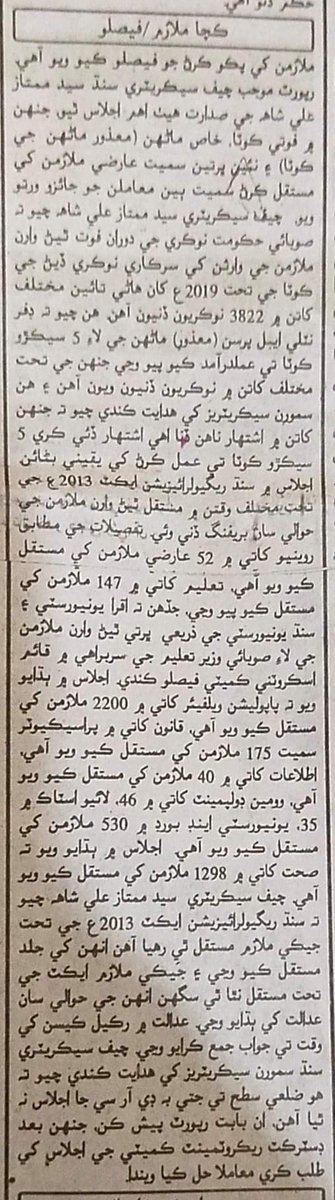 ڪچا ملازم/فيصلو
ملازمن کي پڪو ڪرڻ جو فيصلو ڪيو ويو آهي.
رپورٽ موجب چيف سيڪريٽري سنڌ سيد ممتاز
علي شاھ جي صدارت هيٺ اهم اجلاس ٿيو جنهن
۾ فوتي ڪوٽا، خاص ماڻهن (معذور ماڻهن جي
ڪوٽا) ۽ نئين ڀرتين سميت عارضي ملازمن کي
مستقل ڪرڻ سميت ٻين معاملن جو جائزو ورتو
ويو. چيف سيڪريٽري سيد ممتاز علي شاھ چيو تہ
صوبائي حڪومت نوڪري جي دوران فوت ٿيڻ وارن
ملازمن جي وارثن کي سرڪاري نوڪري ڏيڻ جي
ڪوٽا جي تحت 2019ع کان هاڻي تائين مختلف
کاتن ۾ 3822 نوڪريون ڏنيون آهن. هن چيو تہ ڊفر
نٽلي ايبل پرسن (معذور) ماڻهن جي لاءِ 5 سيڪڙو
ڪوٽا تي عملدرآمد ڪيو پيو وڃي جنهن جي تحت
مختلف کاتن ۾ نوڪريون ڏنيون ويون آهن ۽ هن
سمورن سيڪريٽريز کي هدايت ڪندي چيو تہ جنهن
کاتن ۾ اشتهار ناهن ڏنا اهي اشتهار ڏئي ڪري 5
سيڪڙو ڪوٽا تي عمل ڪرڻ کي يقيني بڻائن.
اجلاس ۾ سنڌ ريگيولرائيزيشن ايڪٽ 2013ع جي
تحت مختلف وقتن ۾ مستقل ٿيڻ وارن ملازمن جي
حوالي سان بريفنگ ڏني وئي. تفصيلات جي مطابق
روينيو کاتي ۾ 52 عارضي ملازمن کي مستقل
ڪيو ويو آهي، تعليم کاتي ۾ 147 ملازمن کي
مستقل ڪيو پيو وڃي، جڏهن تہ اقرا يونيورسٽي ۽
سنڌ يونيورسٽي جي ذريعي ڀرتي ٿيڻ وارن ملازمن
جي لاءِ صوبائي وزير تعليم جي سربراهي ۾ قائم
اسڪروٽني ڪميٽي فيصلو ڪندي. اجلاس ۾ ٻڌايو
ويو تہ پاپوليشن ويلفيئر کاتي ۾ 2200 ملازمن کي
مستقل ڪيو ويو آهي، قانون کاتي ۾ پراسيڪيوٽر
سميت 175 ملازمن کي مستقل ڪيو ويو آهي.
اطلاعات کاتي ۾ 40 ملازمن کي مستقل ڪيو ويو
آهي، وومين ڊولپمينٽ کاتي ۾ 46، لائيو اسٽاڪ ۾
35، يونيورسٽي اينڊ بورڊ ۾ 530 ملازمن کي
مستقل ڪيو ويو آهي. اجلاس ۾ ٻڌايو ويو تہ
صحت کاتي ۾ 1298 ملازمن کي مستقل ڪيو ويو
آهي. چيف سيڪريٽري سيد ممتاز علي شاھ چيو
تہ سنڌ ريگيولرائيزيشن ايڪٽ 2013ع جي تحت
جيڪي ملازم مستقل ٿي رهيا آهن انهن کي جلد
مستقل ڪيو وڃي ۽ جيڪي ملازم ايڪٽ جي
تحت مستقل نٿا ٿي سگهن انهن جي حوالي سان
عدالت کي ٻڌايو وڃي. عدالت ۾ رکيل ڪيسن کي
وقت تي جواب جمع ڪرايو وڃي. چيف سيڪريٽري
سنڌ سمورن سيڪريٽريز کي هدايت ڪندي چيو تہ
هو ضلعي سطح تي جتي بہ ڊي آر سي جا اجلاس نہ
ٿيا آهن، ان بابت رپورٽ پيش ڪن، جنهن بعد
ڊسٽرڪٽ ريڪروٽمينٽ ڪميٽي جي اجلاس کي
طلب ڪري معاملا حل ڪيا ويندا.